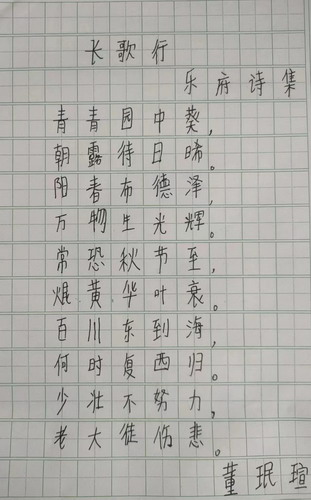 长歌行
乐府诗集
青青园中葵，
朝露待日晞。
阳春布德泽，
万物生光辉。
常恐秋节至，
焜黄华叶衰。
百川东到海，
何时复西归。
少壮不努力，
老大徒伤悲。
董珉瑄